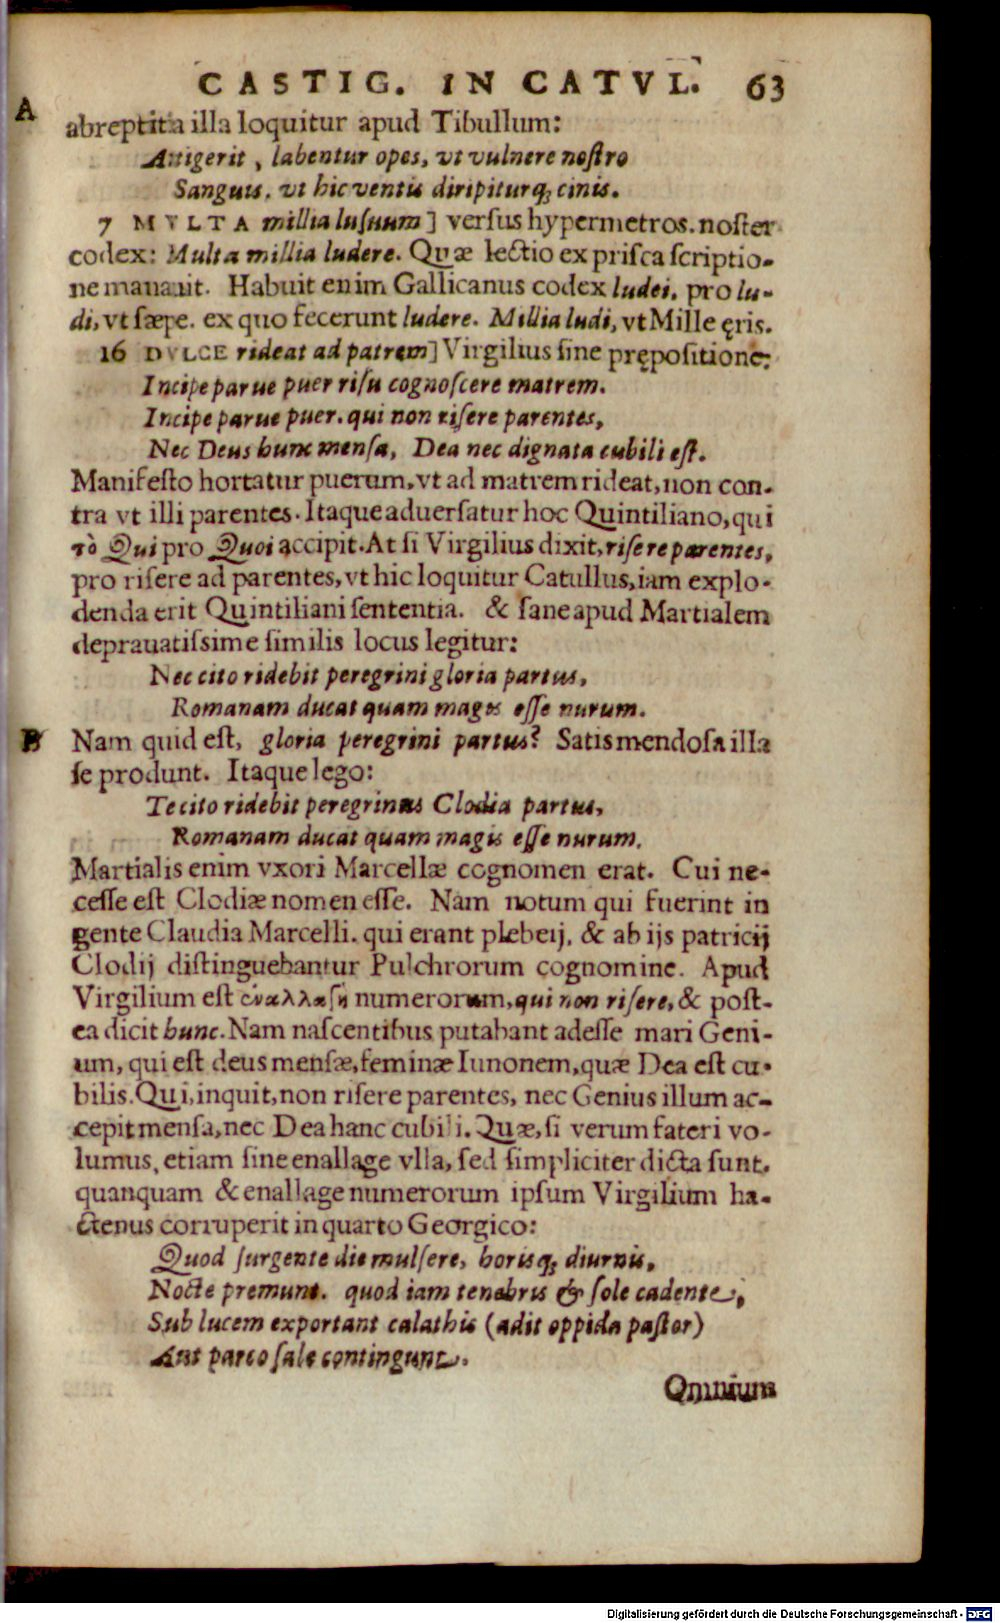 CASTIG. IN CATVL. 63
A
abreptitia illa loquitur apud Tibullum:
Attigerit, labentur opes, vt vulnere nostro
Sanguis, vt hic ventis diripiturq; cinis.
7 MVLTA millia lusuum] versus hypermetros. noster
codex: Multa millia ludere. Quæ lectio ex prisca scriptio-
ne manauit. Habuit enim Gallicanus codex ludei, pro lu-
di, vt sæpe. ex quo fecerunt ludere. Millia ludi, vt Mille ęris.
16 DVLCE rideat ad patrem] Virgilius sine prępositione:
Incipe parue puer risu cognoscere matrem.
Incipe parue puer. qui non risere parentes,
Nec Deus hunc mensa, Dea nec dignata cubili est.
Manifesto hortatur puerum, vt ad matrem rideat, non con-
tra vt illi parentes. Itaque aduersatur hoc Quintiliano, qui
τὸ Qui pro Quoi accipit. At si Virgilius dixit, risere parentes,
pro risere ad parentes, vt hic loquitur Catullus, iam explo-
denda erit Quintiliani sententia. & sane apud Martialem
deprauatissime similis locus legitur:
Nec cito ridebit peregrini gloria partus,
Romanam ducat quam magis esse nurum.
B
Nam quid est, gloria peregrini partus? Satis mendosa illa
se produnt. Itaque lego:
Te cito ridebit peregrinus Clodia partus,
Romanam ducat quam magis esse nurum.
Martialis enim vxori Marcellæ cognomen erat. Cui ne-
cesse est Clodiæ nomen esse. Nam notum qui fuerint in
gente Claudia Marcelli. qui erant plebeij, & ab ijs patricij
Clodij distinguebantur Pulchrorum cognomine. Apud
Virgilium est ἐναλλαγὴ numerorum, qui non risere, & post-
ea dicit hunc. Nam nascentibus putabant adesse mari Geni-
um, qui est deus mensæ, feminæ Iunonem, quæ Dea est cu-
bilis. Qui, inquit, non risere parentes, nec Genius illum ac-
cepit mensa, nec Dea hanc cubili. Quæ, si verum fateri vo-
lumus, etiam sine enallage vlla, sed simpliciter dicta sunt.
quanquam & enallage numerorum ipsum Virgilium ha-
ctenus corruperit in quarto Georgico:
Quod surgente die mulsere, horisq; diurnis,
Nocte premunt. quod iam tenebris & sole cadente,
Sub lucem exportant calathis (adit oppida pastor)
Aut parco sale contingunt.
Omnium
Digitalisierung gefördert durch die Deutsche Forschungsgemeinschaft - DFG